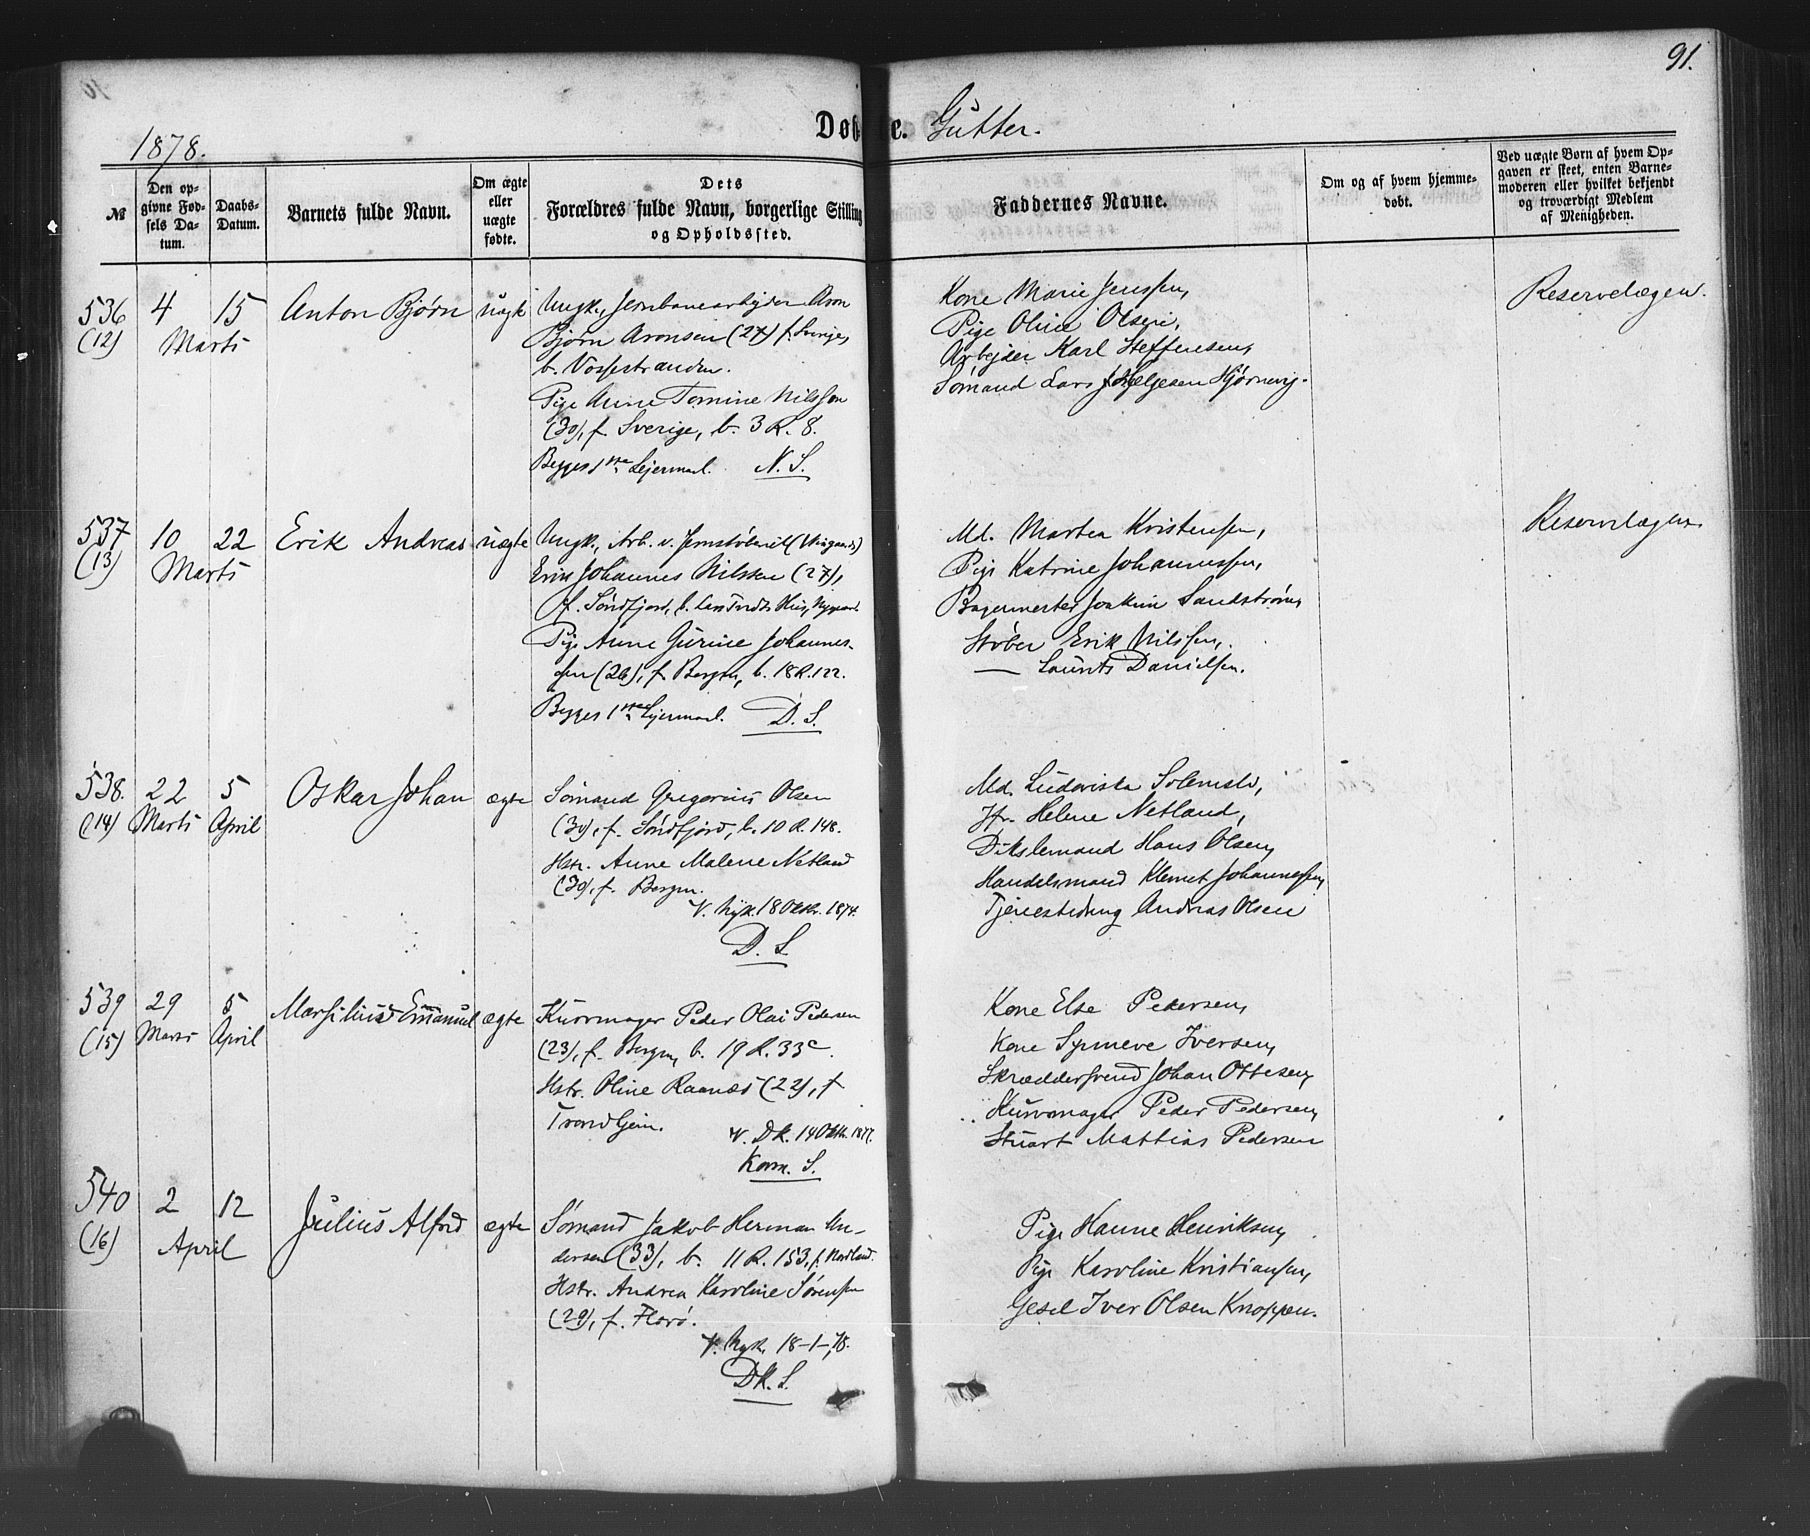 91.
1878.
Døbte. Gutter.
№
Den opgivne Fødsels Datum.
Daabs-Datum.
Barnets fulde Navn.
Om ægte eller uægte fødte.
Dets Forældres fulde Navn, borgerlige Stilling og Opholdssted.
Faddernes Navne.
Om og af hvem hjemmedøbt.
Ved uægte Børn af hvem Opgaven er skeet, enten Barnemoderen eller hvilket bekjendt og troværdigt Medlem af Menigheden.
536
(12)
4 15
Marts
Anton Bjørn
uægt
Ungk., Jernbanearbejder Aron
Bjørn Aronsen (27) f. Sverige,
b. Vossestranden.
Pige Anne Tomine Nilsson
(30), f. Sverige, b. 3 R. 8.
Begges 1ste Lejermaal. N. S.
Kone Marie Jenssen,
Pige Oline Olsen,
Arbejder Karl Steffensen,
Sømand Lars Helgesen Hjørnevig.
Reservelægen.
537
(13)
10 22
Marts
Erik Andreas
uægte
Ungk., Arb. v. Jernstøberiet
Erik Johannes Nilssen (27),
f. Søndfjord, b. Hus, Nygaard.
Pige Anne Gurine Johannes-
sen (26), f. Bergen, b. 18 R. 122.
Begges 1ste Lejermaal. D. S.
Md. Martea Kristensen,
Pige Katrine Johannessen,
Bagermester Joakim Sandstrøm,
Støber Erik Nilssen,
— Laurits Danielsen.
Reservelægen
538.
(14)
22 5
Marts April
Oskar Johan
ægte
Sømand Gregorius Olsen
(30), f. Søndfjord, b. 10 R. 148.
Hstr. Anne Malene Netland
(30), f. Bergen.
V. Nyk. 18 Oktbr. 1874.
D. S.
Md. Ludoviska Solemsli,
Jfr. Helene Netland,
Dikslemand Hans Olsen,
Handelsmand Klemet Johannessen,
Tjenestedreng Andreas Olsen
539
(15)
29 5
Marts April
Marsilius Emanuel
ægte
Kurvmager Peder Olai Pedersen
(23), f. Bergen, b. 19 R. 33c.
Hstr. Oline Raanæs (22), f.
Trondhjem.
V. Dk. 14 Oktbr. 1877.
Korsk. S.
Kone Else Pedersen,
Kone Synneve Iversen,
Skræddersvend Johan Ottesen,
Kurvmager Peder Pedersen,
Stuart Mattias Pedersen
540
(16)
2 12
April
Julius Alfred
ægte
Sømand Jakob Herman An-
dersen (33), b. 11 R. 153, f. Nordland.
Hstr. Andrea Karoline Sørensen
(29), f. Florø.
V. Nyk. 18-1-78.
Dk. S.
Pige Hanne Henriksen,
Pige Karoline Kristiansen,
Gesel Iver Olsen Knappen.